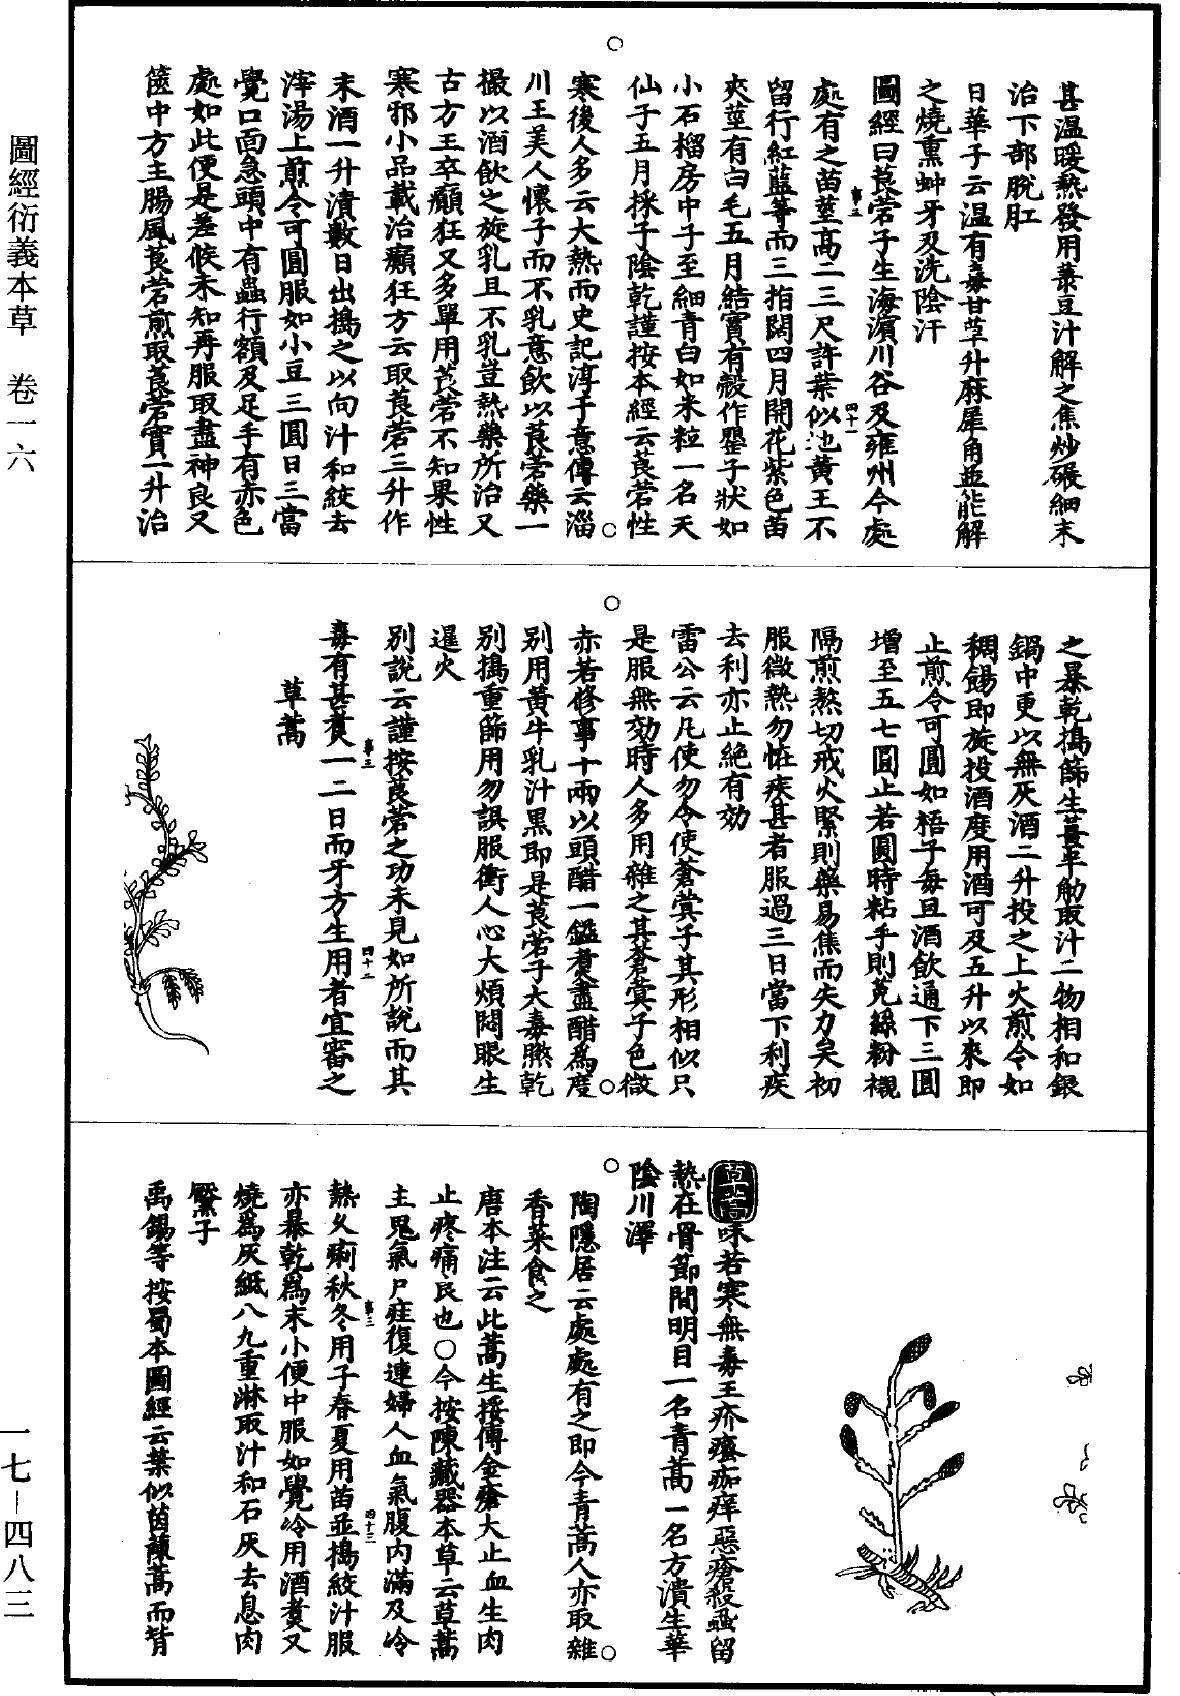 圖經衍義本草　卷一六
一七—四八三
甚温暖熱發用菉豆汁解之焦炒碾細末
治下部脫肛
日華子云温有毒甘草升麻犀角並能解
之燒熏蚛牙及洗陰汗
圖經曰莨菪子生海濵川谷及雍州今處
處有之苗莖高二三尺許葉似地黄王不
留行紅藍等而三指闊四月開花紫色苗
夾莖有白毛五月結實有殼作罌子狀如
小石榴房中子至細青白如米粒一名天
仙子五月採子陰乾謹按本經云莨菪性
寒後人多云大熱而史記淳于意傳云淄
川王美人懷子而不乳意飲以莨菪藥一
撮以酒飲之旋乳且不乳豈熱藥所治又
古方王卒癲狂又多單用莨菪不知果性
寒邪小品載治癲狂方云取莨菪三升作
末酒一升漬數日出搗之以向汁和絞去
滓湯上煎令可圓服如小豆三圓日三當
覺口面急頭中有蟲行額及足手有赤色
處如此便是差候未知再服取盡神良又
篋中方主腸風莨菪煎取莨菪實一升治
之暴乾搗篩生薑半觔取汁二物相和銀
鍋中更以無灰酒二升投之上火煎令如
稠餳即旋投酒度用酒可及五升以來即
止煎令可圓如梧子每旦酒飲通下三圓
增至五七圓止若圓時粘手則菟絲粉襯
隔煎熬切戒火緊則藥易焦而失力矣初
服微熱勿恠疾甚者服過三日當下利疾
去利亦止絶有効
雷公云凡使勿令使蒼蓂子其形相似只
是服無効時人多用雜之其蒼蓂子色微
赤若修事十兩以頭醋一鎰煑盡醋爲度
別用黃牛乳汁黑即是莨菪子大毒㬠乾
別搗重篩用勿誤服衝人心大煩悶眼生
暹火
別說云謹按莨菪之功未見如所說而其
毒有甚煑一二日而牙方生用者宜審之
草蒿
味苦寒無毒王疥癢痂痒惡瘡殺蝨留
熱在骨節間明目一名青蒿一名方潰生華
陰川澤
陶隱居云處處有之即今青蒿人亦取雜
香菜食之
唐本注云此蒿生挼傅金瘡大止血生肉
止疼痛良也○今按陳藏器本草云草蒿
主鬼氣尸疰復連婦人血氣腹内滿及冷
熱久痢秋冬用子春夏用苗並搗絞汁服
亦暴乾爲末小便中服如覺冷用酒煑又
燒爲灰紙八九重淋取汁和石灰去息肉
黶子
禹錫等按蜀本圖經云葉似茵蔯蒿而背